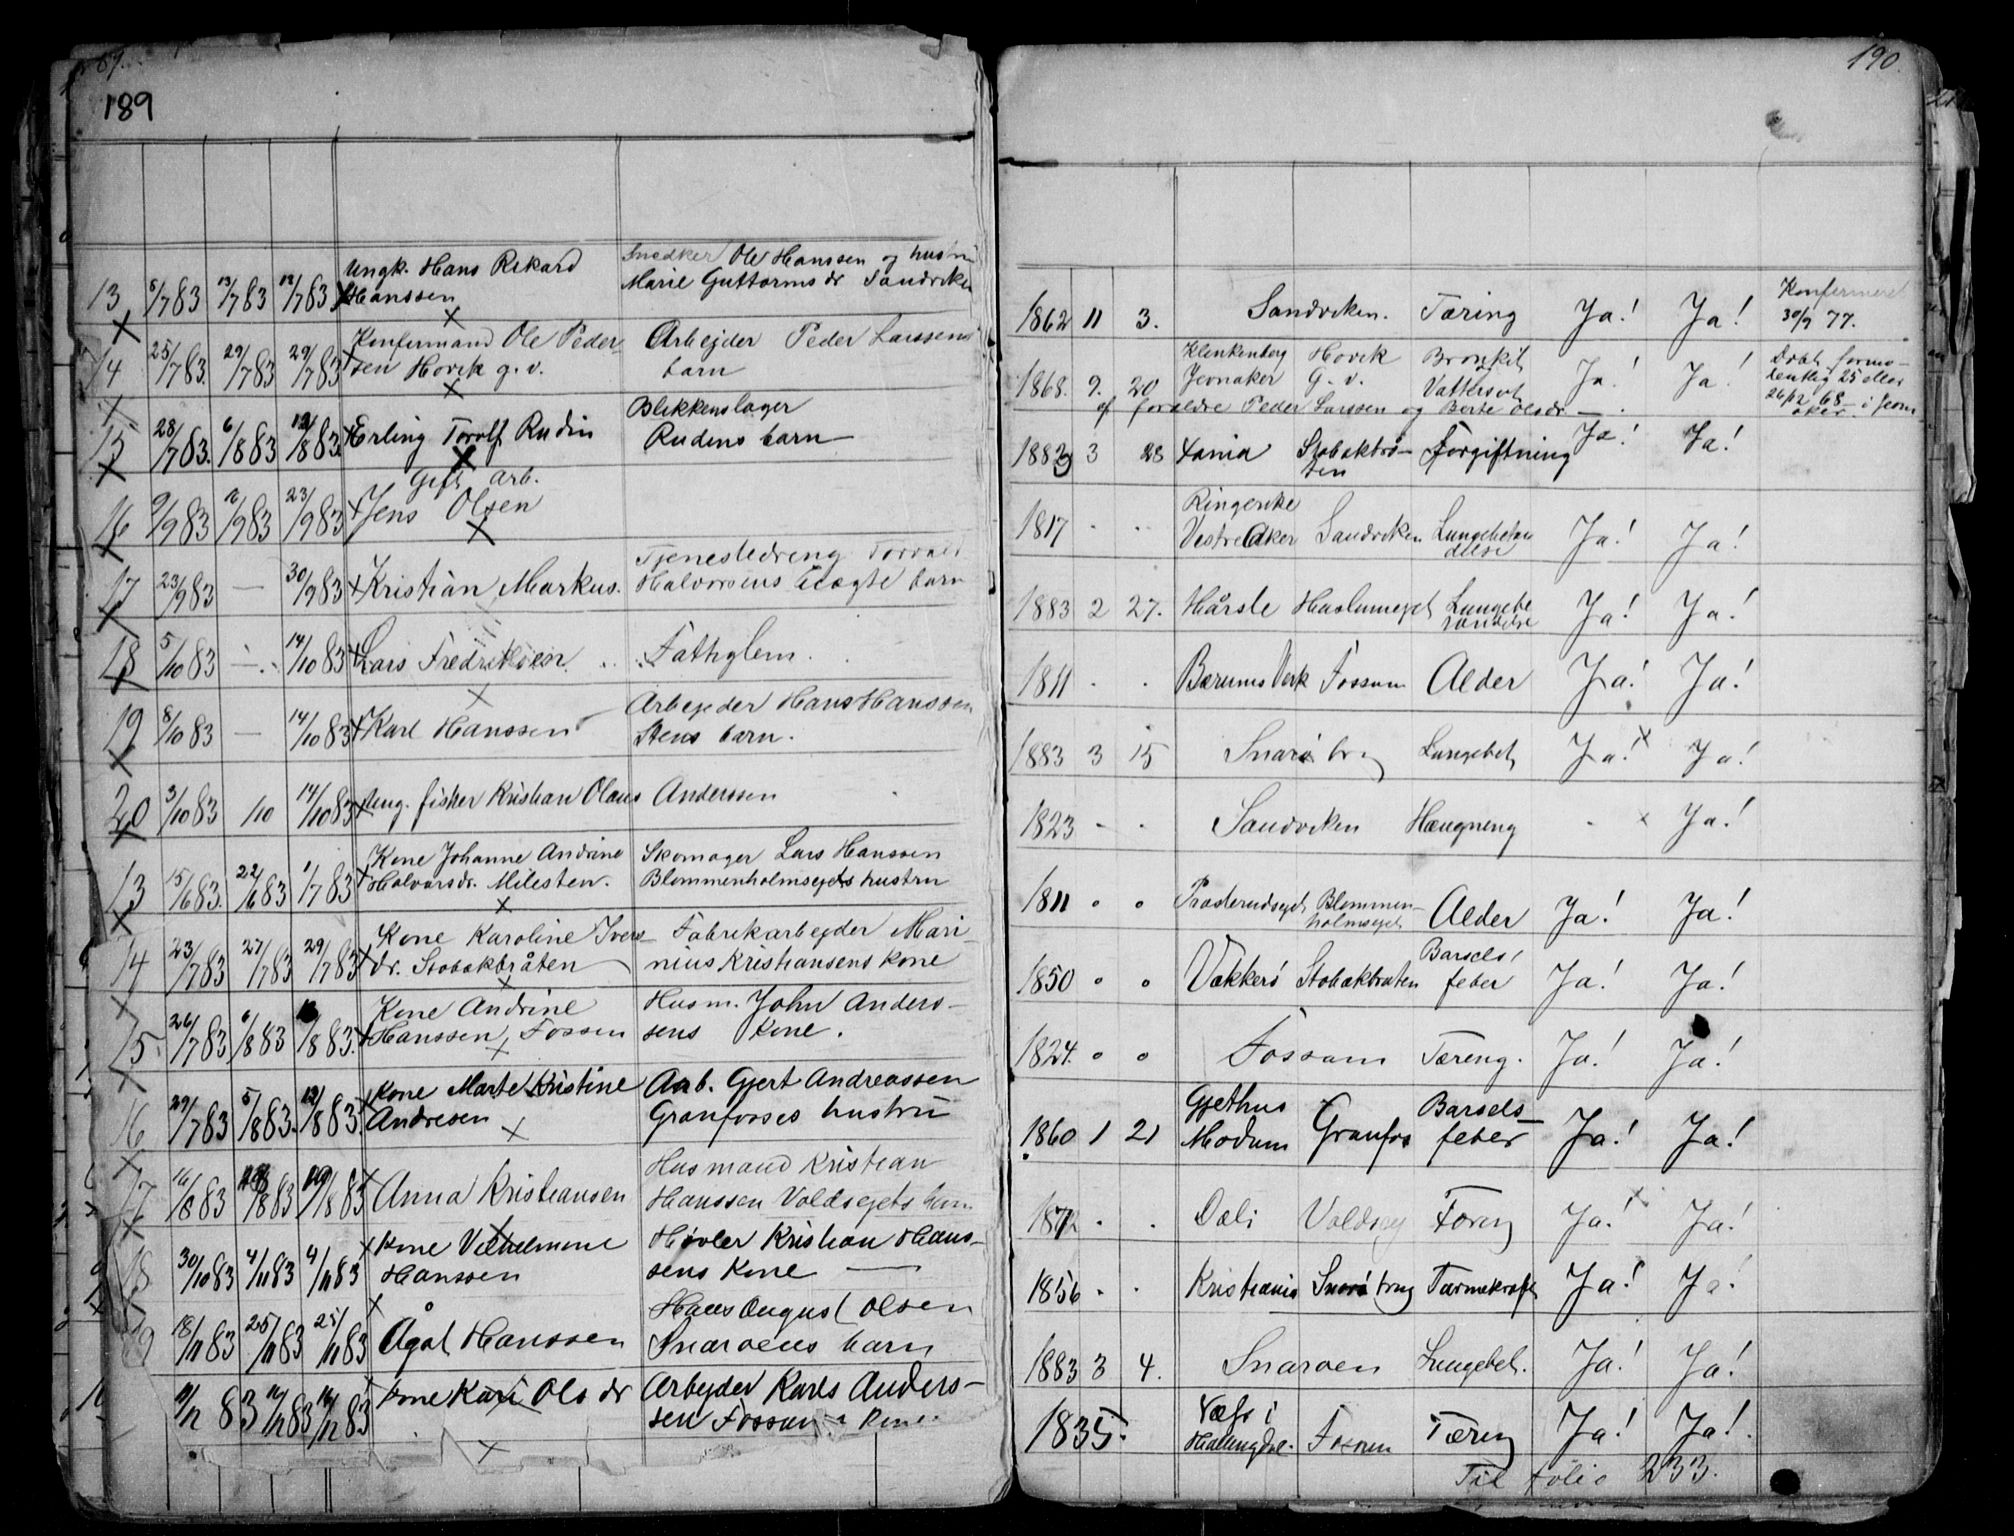 189
13 5/7 83 13/7 83 12/7 83 Ungk. Hans Rikard
Hanssen
Snedker Ole Hanssen og hustru
Marie Guttormsdr Sandviken
14 25/7 83. 29/7 83 29/7 83 Konfirmand Ole Peder-
sen Hovik g. v.
Arbejder Peder Larssens
barn
15 28/7 83. 6/8 83 12/8 83. Erling Torolf Rudin
Blikkenslager
Rudens barn
16 9/9 83 /9 83 23/9 83 Gift arb.
Jens Olsen
17 23/9 83 — 30/9 83 Kristian Markus.
Tjenestedreng Torvald
Halvorsens uægte barn
18 5/10 83 — 14/10 83 Lars Fredriksen
Fattiglem.
19 8/10 83 — 14/10 83 Karl Hanssen
Arbejder Hans Hanssen
Stens barn.
20 3/10 83 /10 14/10 83 Ung. fisker Kristian Olaus Anderssen
13 15/6 83. 22/6 83 1/7 83 Kone Johanne Andrine
Halvorsdr. Milesten.
Skomager Lars Hanssen
Blommenholmsejets hustru
14 23/7 83 27/7 83 29/7 83 Kone Karoline Ivers-
dr. Stobakbråten
Fabrikarbejder Mari-
nius Kristiansens kone
15. 26/7 83. 6/8 83 /8 83. Kone Andrine
Hanssen, Fossen
Husm. John Anders-
sens Kone.
16 29/7 83 5/8 83. 12/8 83. Kone Marte Kristine
Andresen
Arb. Gjert Andreassen
Granfosses hustru
17 16/8 83 /8 83 19/8 83 Anna Kristiansen
Husmand Kristian
Hanssen Voldsejets barn
18 30/10 83 4/11 83 4/11 83 Kone Vilhelmine
Hanssen
Høvler Kristian Hans-
sens Kone —
19 18/11 83 25/11 83 25/11 83 Ågot Hanssen
Hans August Olsen
Snaroens barn
11/12 83 16/12 83 16/12 83 Kone Kari Olsdr
Arbejder Karls Anders-
sen Fossum Kone
190.
1862 11 3. Sandviken. Tæring Ja! Ja! Konfirmeret
30/9 77.
1868. 9. 20 Klinkenberg Jevnaker Hovik G. v. Bronkit Vattersot Ja! Ja! Døbt formo-
dentlig 25 eller
26/12 68 i Jevn
aker
af forældre Peder Larssen og Berte Olsdr —
1883 3 28 Tania Stobakbrå-
ten Forgiftning Ja! Ja!
1817 - - Ringerike
Vestre Aker Sandviken Lungebetæn
delse Ja! Ja!
1883 2 27. Hårsle Haslumejet Lungebe
tændelse Ja! Ja!
1811 - - Bærums Verk Fossum Alder Ja! Ja!
1883 3 15 Snarø br Lungebet, Ja! Ja!
1823 - - Sandviken Hængning - Ja!
1811 " " Prosterudsejet Blommen-
holmsejet Alder Ja! Ja!
1850 " " Vækkerø Stobakbraten Barsels
feber Ja! Ja!
1824. " " Fossum Tæreng. Ja! Ja!
1860 1 21 Gjethus
Modum Granfos Barsels-
feber Ja! Ja!
1872 - - Dæli Voldsej Tæring Ja! Ja!
1856 - - Kristiania Snarø brug Tarmekræft Ja! Ja!
1883 3 4. Snaroen Lungebet. Ja! Ja!
1835. Næs i
Hallingdal. Fossum Tæring Ja! Ja!
Til folio 233.